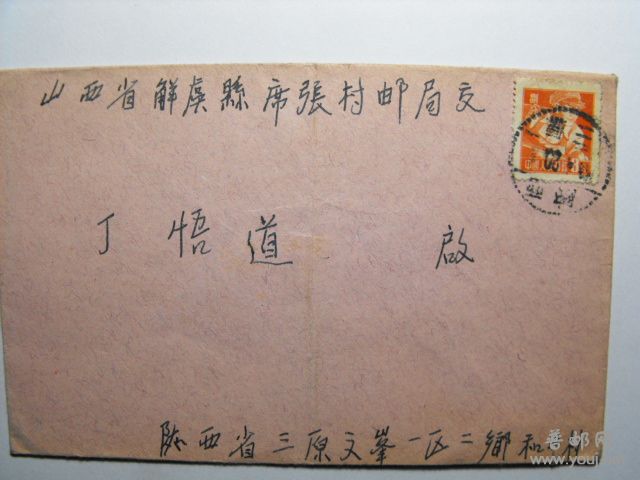 山西省解虞縣席張村邮局交
丁悟道 啟
陝西省三原文峯一区二鄉和
普邮
www.youj